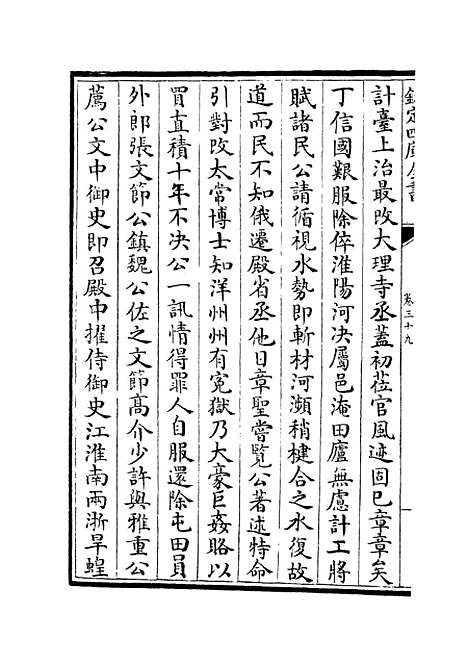 欽定四庫全書
卷三十九
計臺上治最改大理寺丞蓋初莅官風迹固已章章矣
丁信國艱服除倅淮陽河决屬邑淹田廬無慮計工將
賦諸民公請循視水勢即斬材河瀕稍楗合之水復故
道而民不知俄遷殿省丞他日章聖嘗覧公著述特命
引對改太常博士知洋州州有寃獄乃大豪巨姦賂以
買直積十年不决公一訊情得罪人自服還除屯田員
外郎張文節公鎮魏公佐之文節髙介少許與雅重公
薦公文中御史即召殿中擢侍御史江淮南兩浙旱蝗